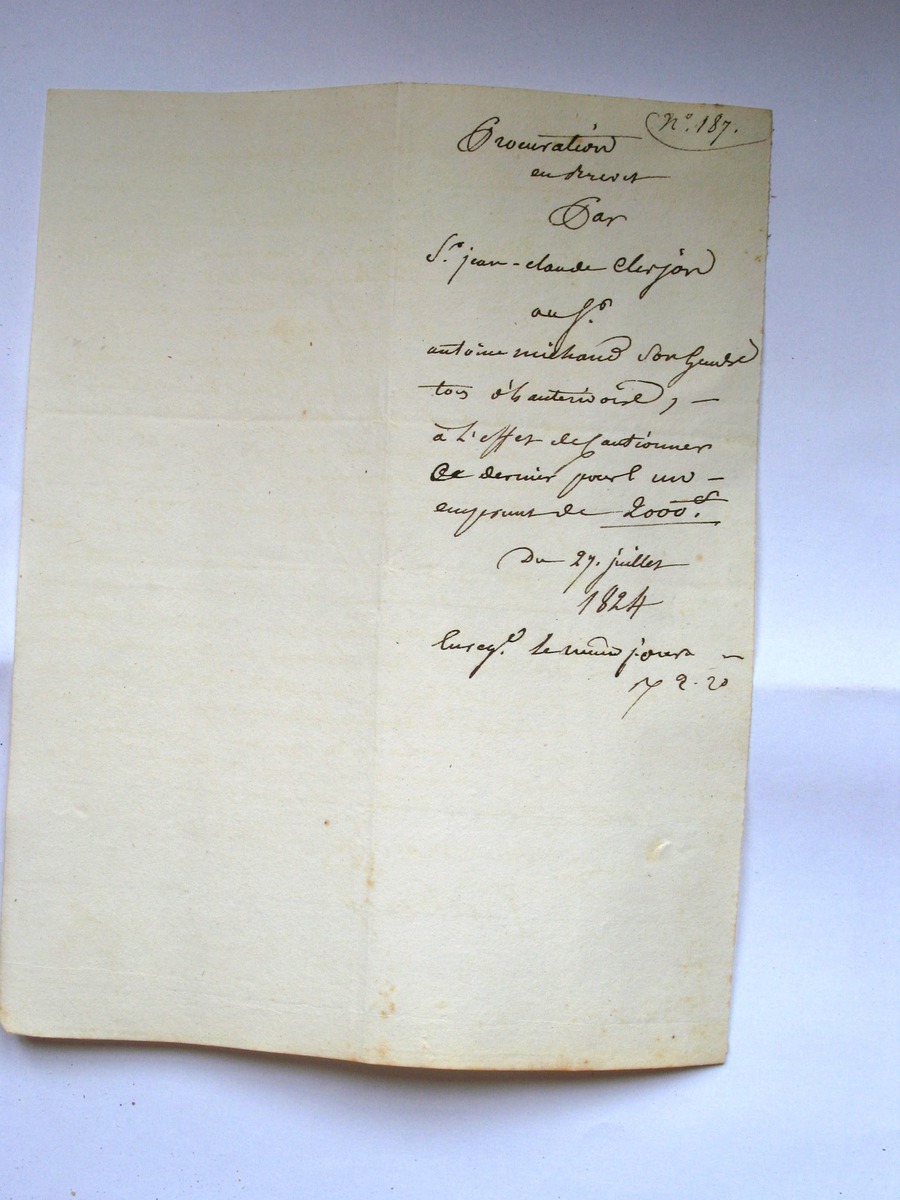 N.º 187.
Procuration
en brevet
Par
S.r jean-claude Clerjon
au S.r
antoine michaud son Gendre
tous d'hauterivoire, —
à l'effet de Cautionner
Ce dernier pour un —
emprunt de 2000f.
Du 27. juillet
1824
Enreg.é le même jour —
2-20